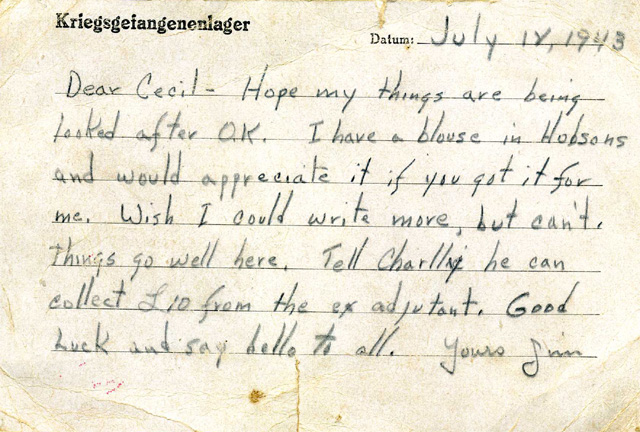 Kriegsgefangenenlager
Datum: July 12, 1943
Dear Cecil - Hope my things are being
looked after O.K. I have a blouse in Hobsons
and would appreciate it if you got it for
me. Wish I could write more, but can't.
Things go well here. Tell Charlly he can
collect £10 from the ex adjutant. Good
Luck and say hello to all. Yours Jim